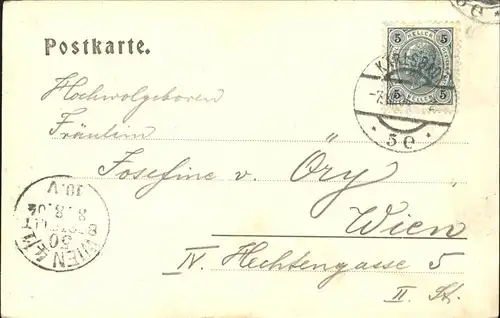 Postkarte.
5 HELLER 5
5 HELLER 5
* 5 e *
Hochwolgeboren
Fräulein
Josefine v. Öry
Wien
IV. Hechtengasse 5
II. St.
WIEN 4/1
50
8.8.04
10.V